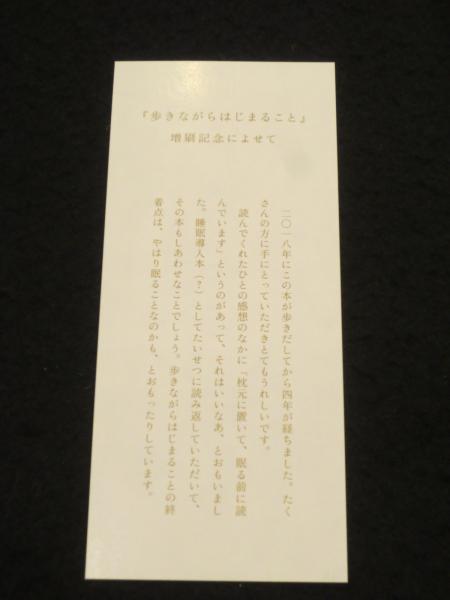 『歩きながらはじまること』
増刷記念によせて
二〇一八年にこの本が歩きだしてから四年が経ちました。たく
さんの方に手にとっていただきとてもうれしいです。
読んでくれたひとの感想のなかに「枕元に置いて、眠る前に読
んでいます」というのがあって、それはいいなあ、とおもいまし
た。睡眠導入本（？）としてたいせつに読み返していただいて、
その本もしあわせなことでしょう。歩きながらはじまることの終
着点は、やはり眠ることなのかも、とおもったりしています。